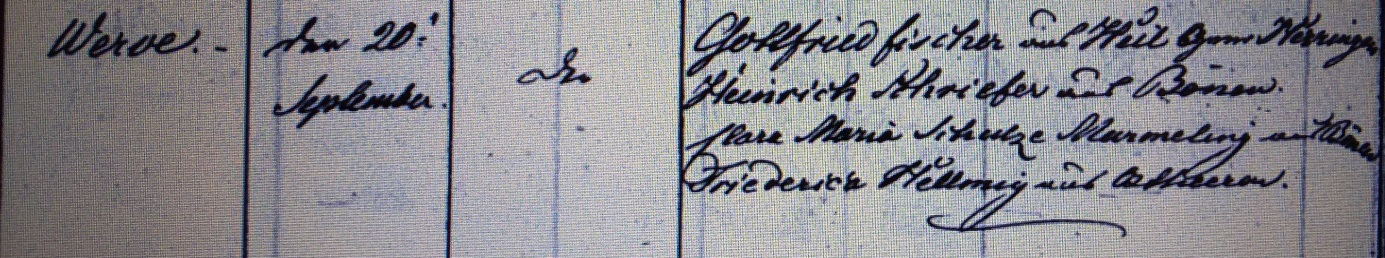 Werve. - den 20.
September.
Gottfried Fischer aus Weil
Heinrich Schriefer aus Bönen.
Clara Maria Schulze Marmeling aus Bönen
Friederich Hellmig aus